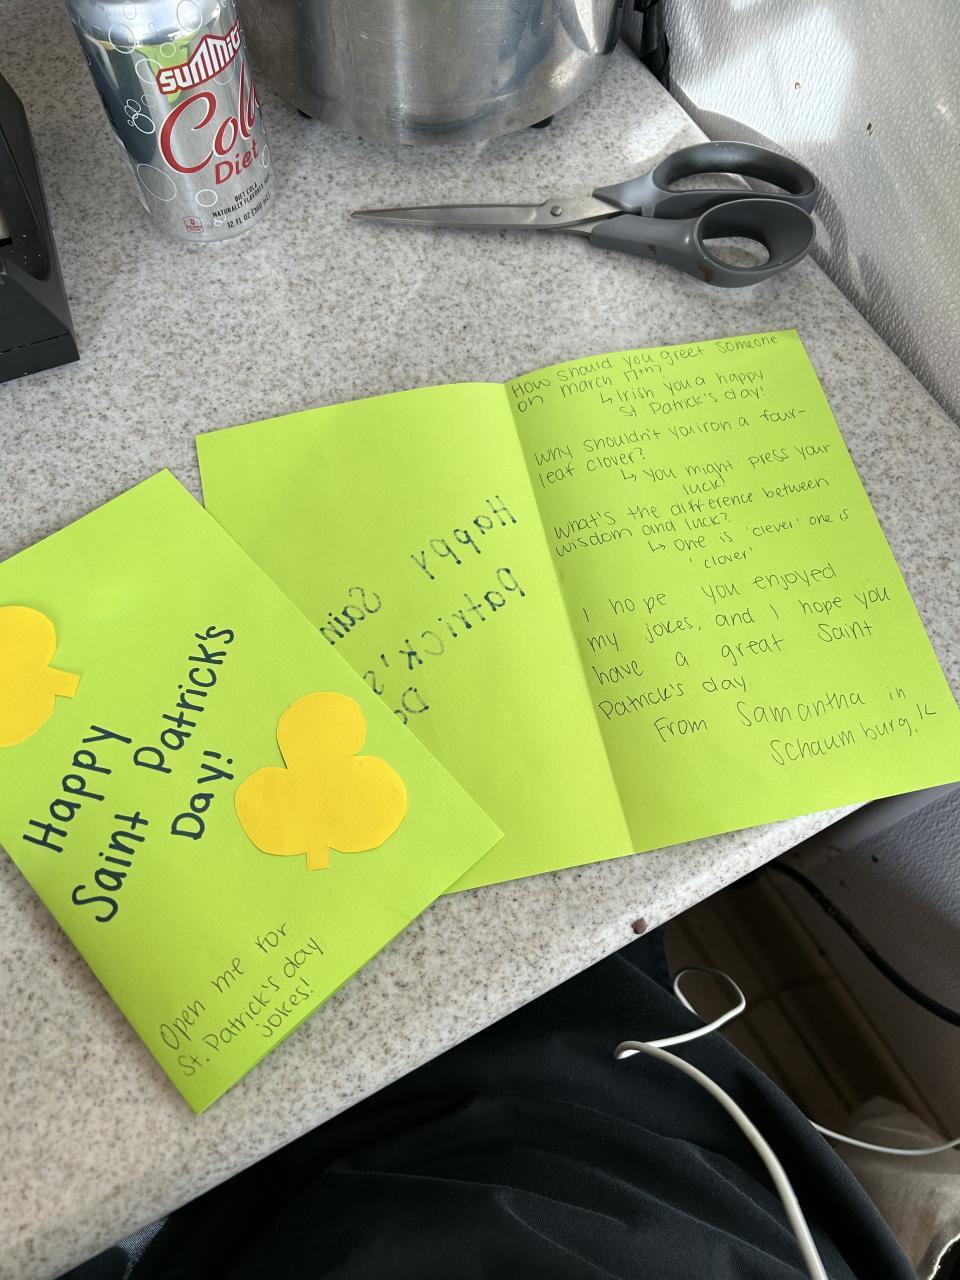 summit
Cola
Diet
DIET COLA
NATURALLY FLAVORED
12 FL OZ (360
0
How should you greet someone
on march 17th?
↳ Irish you a happy
St. Patrick's day!
Why shouldn't you iron a four-
leaf clover?
↳ you might press your
luck!
what's the difference between
wisdom and luck?
↳ One is 'clever' one is
'clover'
I hope you enjoyed
my jokes, and I hope you
have a great Saint
Patrick's day.
From Samantha in
Schaumburg, IL
Happy
Sain
Patrick's
Da
Happy
Saint Patrick's
Day!
Open me for
St. Patrick's day
jokes!